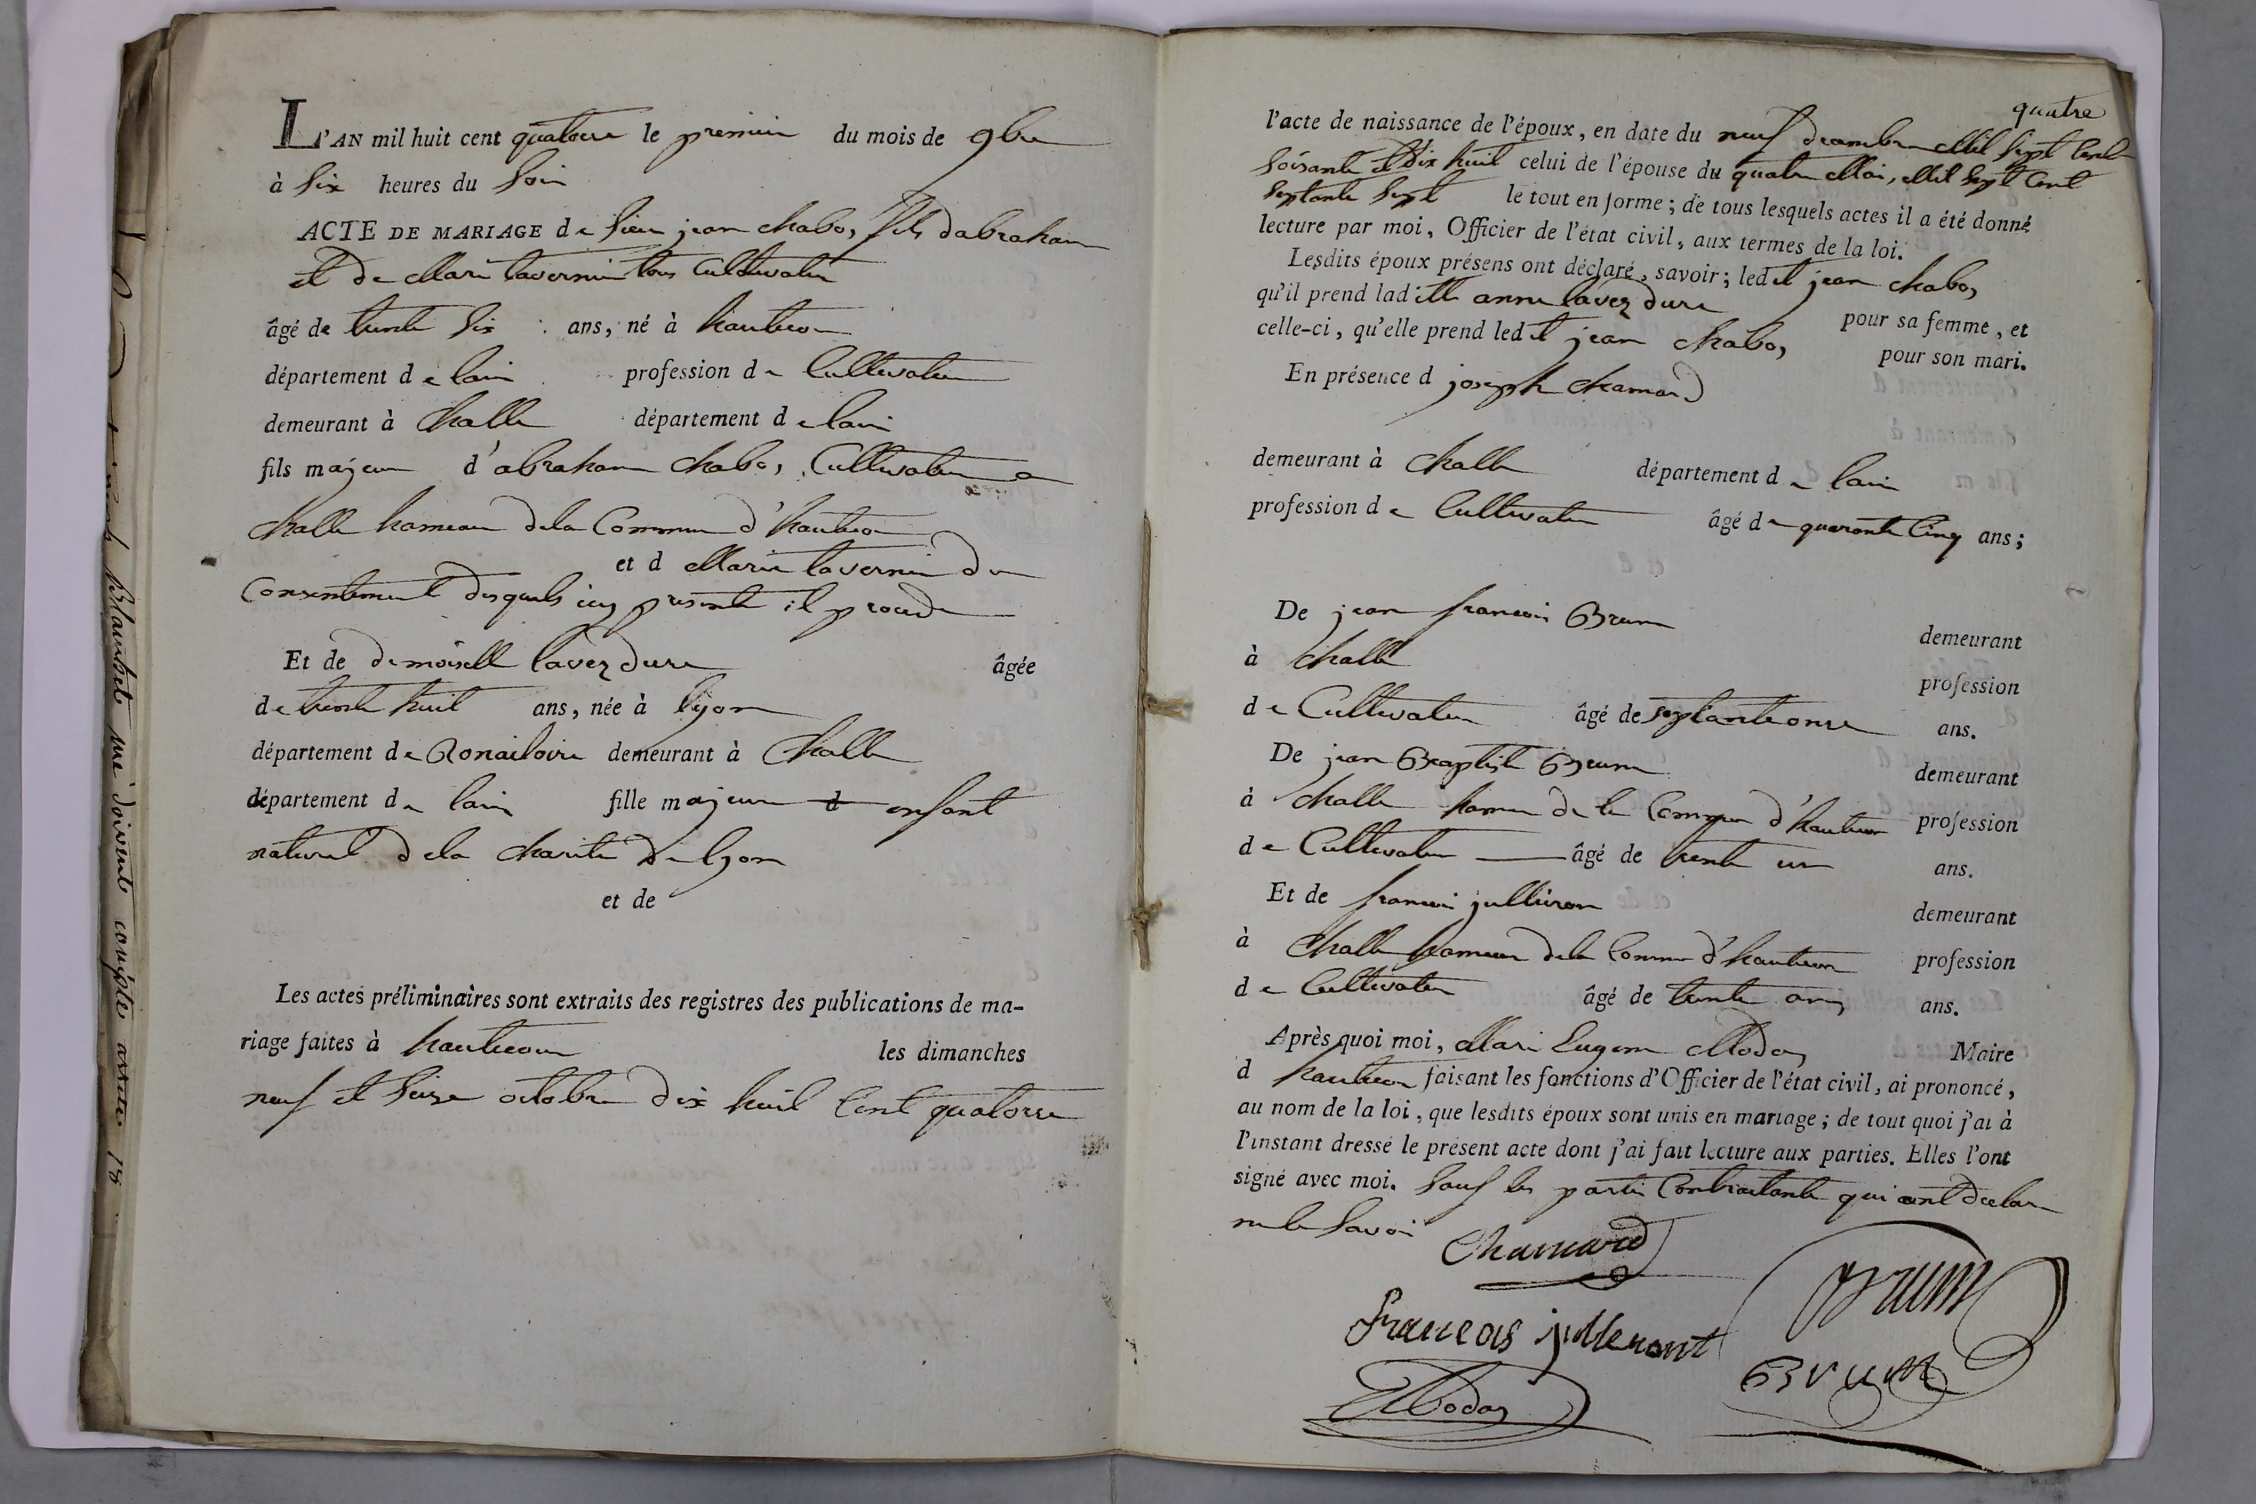 L'AN mil huit cent quatorze le premier du mois de 9bre
à Six heures du Soir
ACTE DE MARIAGE de Sieur jean chabos, fils dabraham
et de Marie tavernier tous Cultivateur
âgé de trente Six ans, né à hauteco
département de lain profession de Cultivateur
demeurant à challe département de lain
fils majeur d'abraham chabos, Cultivateur a
challe hameau dela Commune d'hauteco
et d Marie tavernier du
Consentement desquels icy presente il procede
Et de demoiselle lavezdure âgée
de trente huit ans, née à lyon
département de Ronailoire demeurant à challe
département de lain fille majeure d enfant
naturel dela charité de lyon
et de
Les actes préliminaires sont extraits des registres des publications de ma-
riage faites à hautecour les dimanches
neuf et Seize octobre dix huit Cent quatorze
quatre
l'acte de naissance de l'époux, en date du neuf decembre Mil Sept Cent
Soisante et dix huit celui de l'épouse du quatre Mai, Mil Sept Cent
Septante Sept le tout en forme ; de tous lesquels actes il a été donné
lecture par moi, Officier de l'état civil, aux termes de la loi.
Lesdits époux présens ont déclaré, savoir ; ledit jean chabos
qu'il prend laditte anne lavezdure pour sa femme, et
celle-ci, qu'elle prend ledit jean chabos pour son mari.
En présence d joseph chamard
demeurant à challe département de lain
profession de Cultivateur âgé de quaronte Cinq ans ;
De jean francois Brun demeurant
à challe profession
de Cultivateur âgé de septante onze ans.
De jean Baptiste Brun demeurant
à challe hameau de la Commune d'hautecour profession
de Cultivateur âgé de trente un ans.
Et de francois jullieron demeurant
à challe hameau dela Commune d'hautecour profession
de Cultivateur âgé de trente ans.
Après quoi moi, Marie Eugene Modas Maire
d hautecour faisant les fonctions d'Officier de l'état civil, ai prononcé,
au nom de la loi, que lesdits époux sont unis en mariage ; de tout quoi j'ai à
l'instant dressé le présent acte dont j'ai fait lecture aux parties. Elles l'ont
signé avec moi. Sauf les partie Contractante qui ont declare
ne le Savoir
Chamard
Brun
francois julleront
Brun
Modas